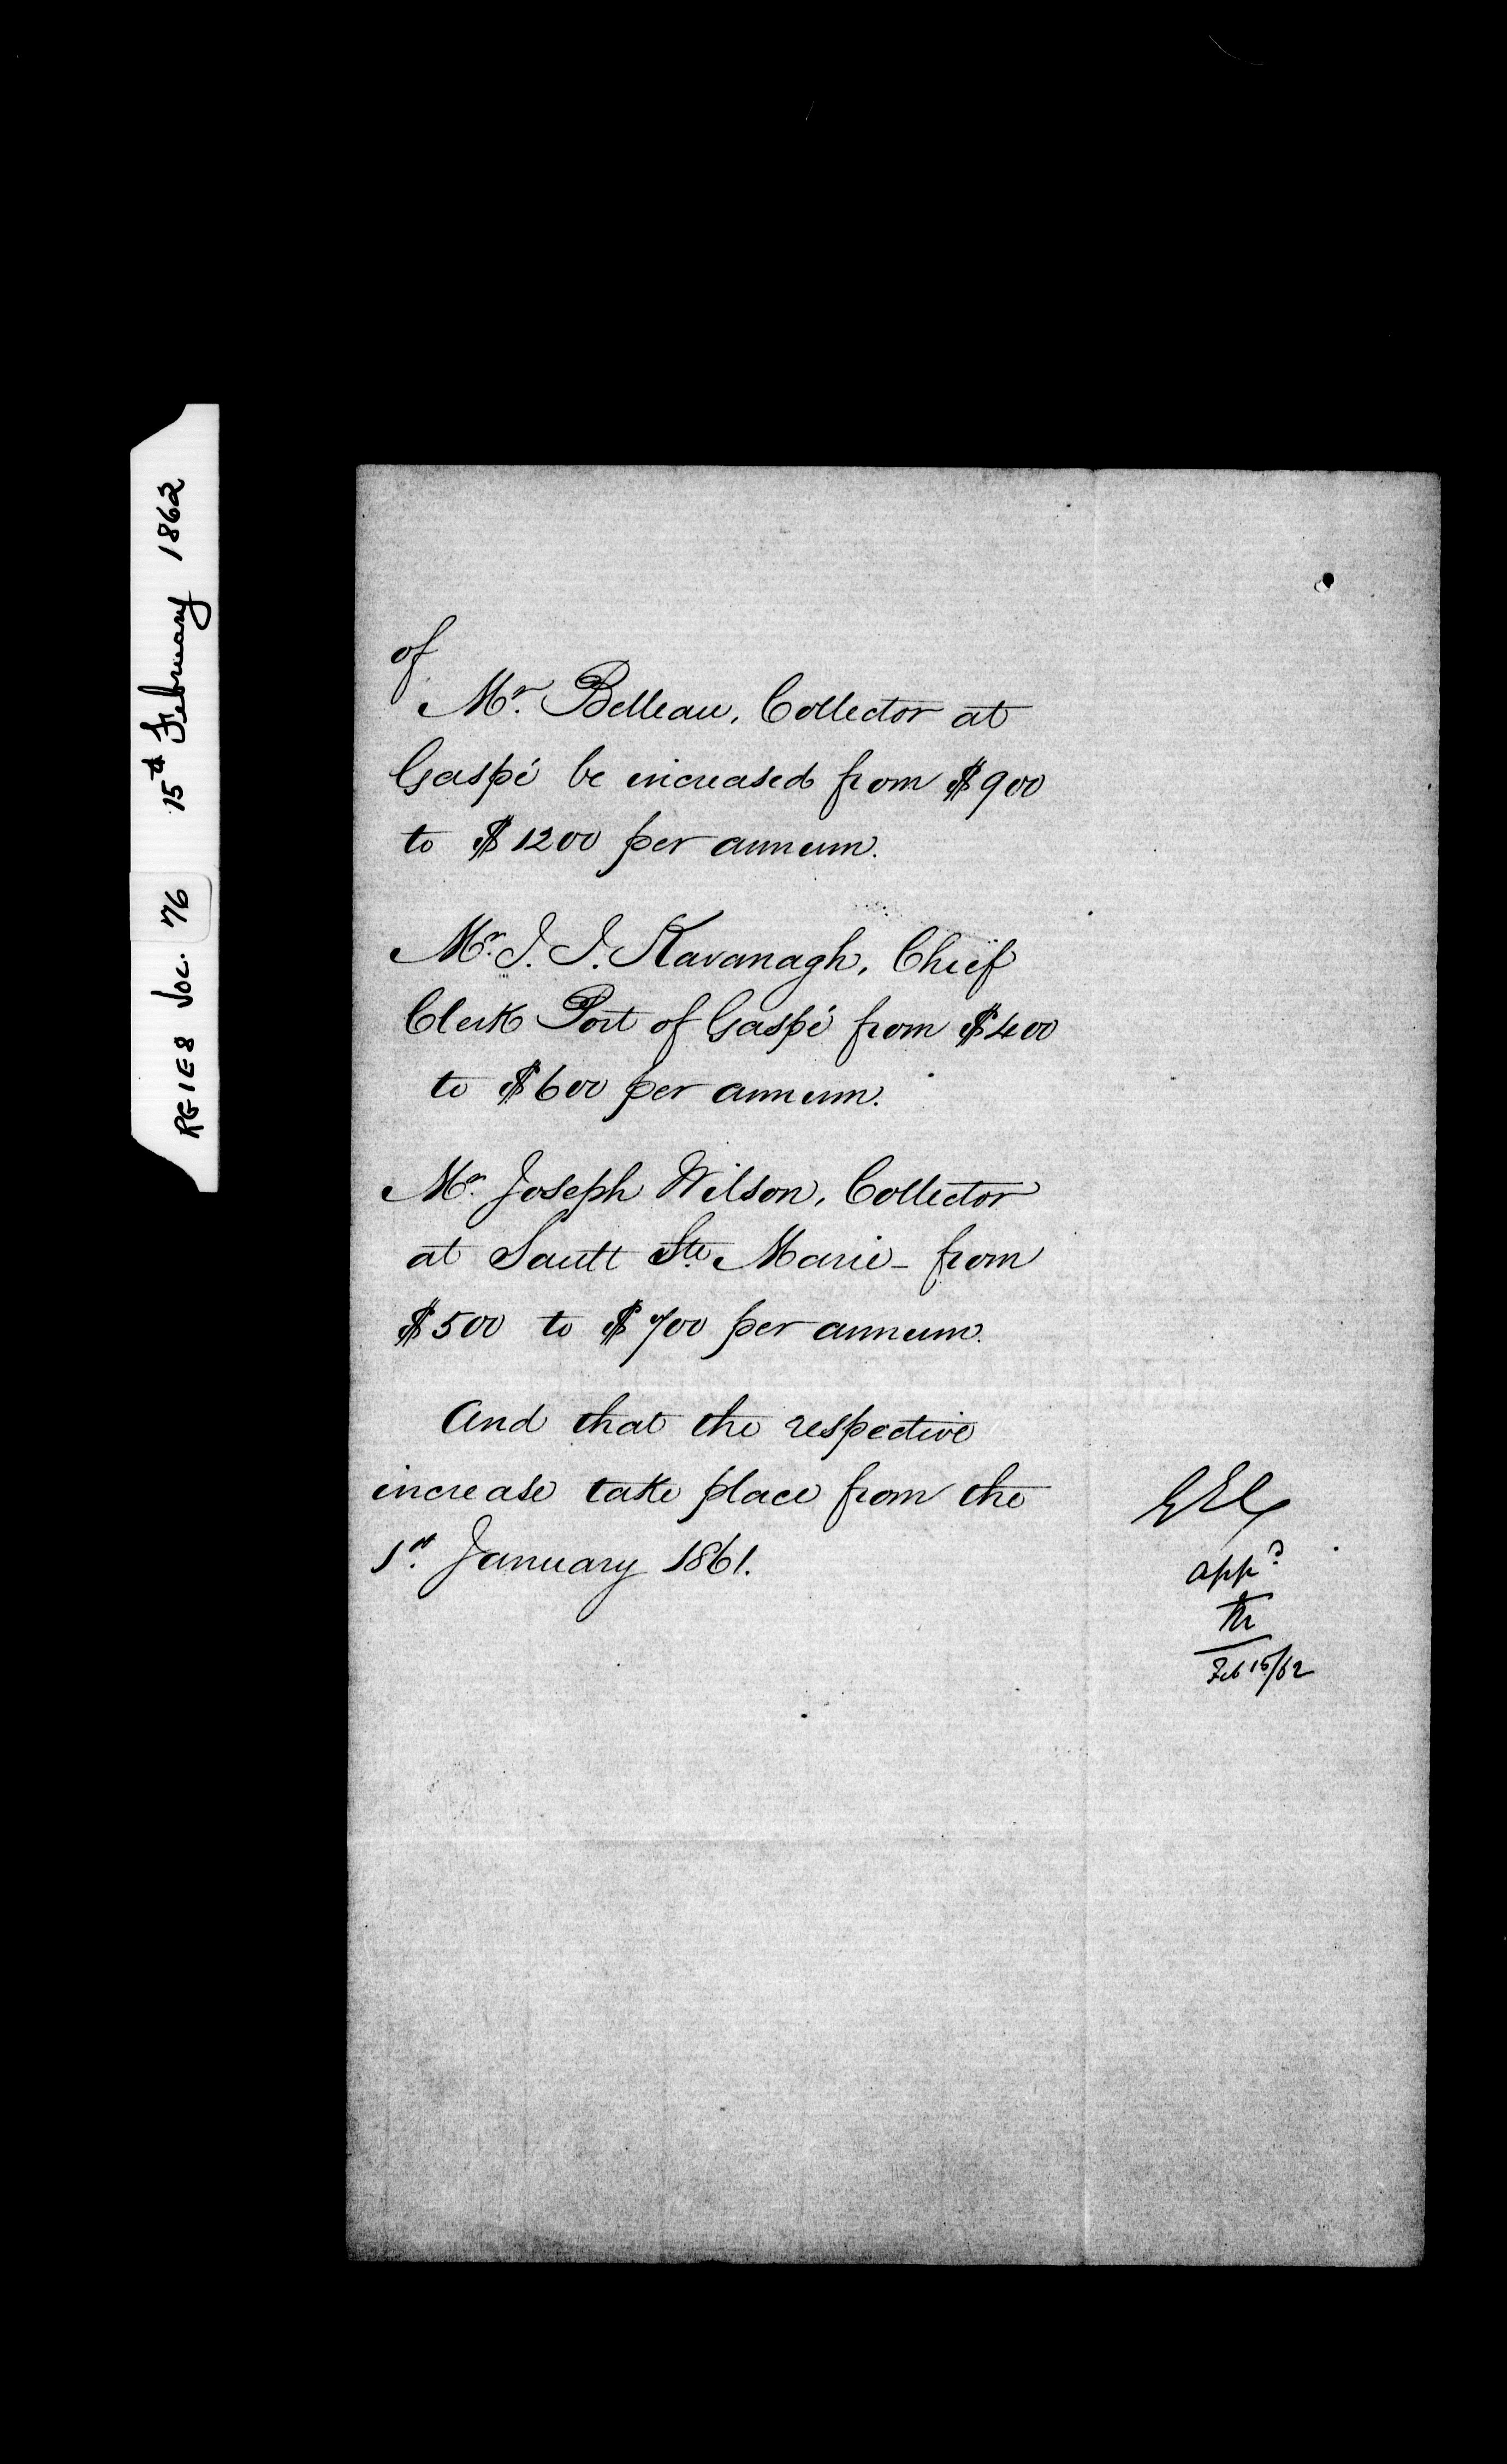 RG1E8 Vol. 76 15th February 1862
of
Mr. Belleau, Collector at
Gaspé be increased from $900
to $1200 per annum.
Mr. J. J. Kavanagh, Chief
Clerk Port of Gaspé from $400
to $600 per annum.
Mr. Joseph Wilson, Collector
at Sault Ste. Marie - from
$500 to $700 per annum.
And that the respective
increase take place from the
1st. January 1861.
GEC
appd
Feb 15/62